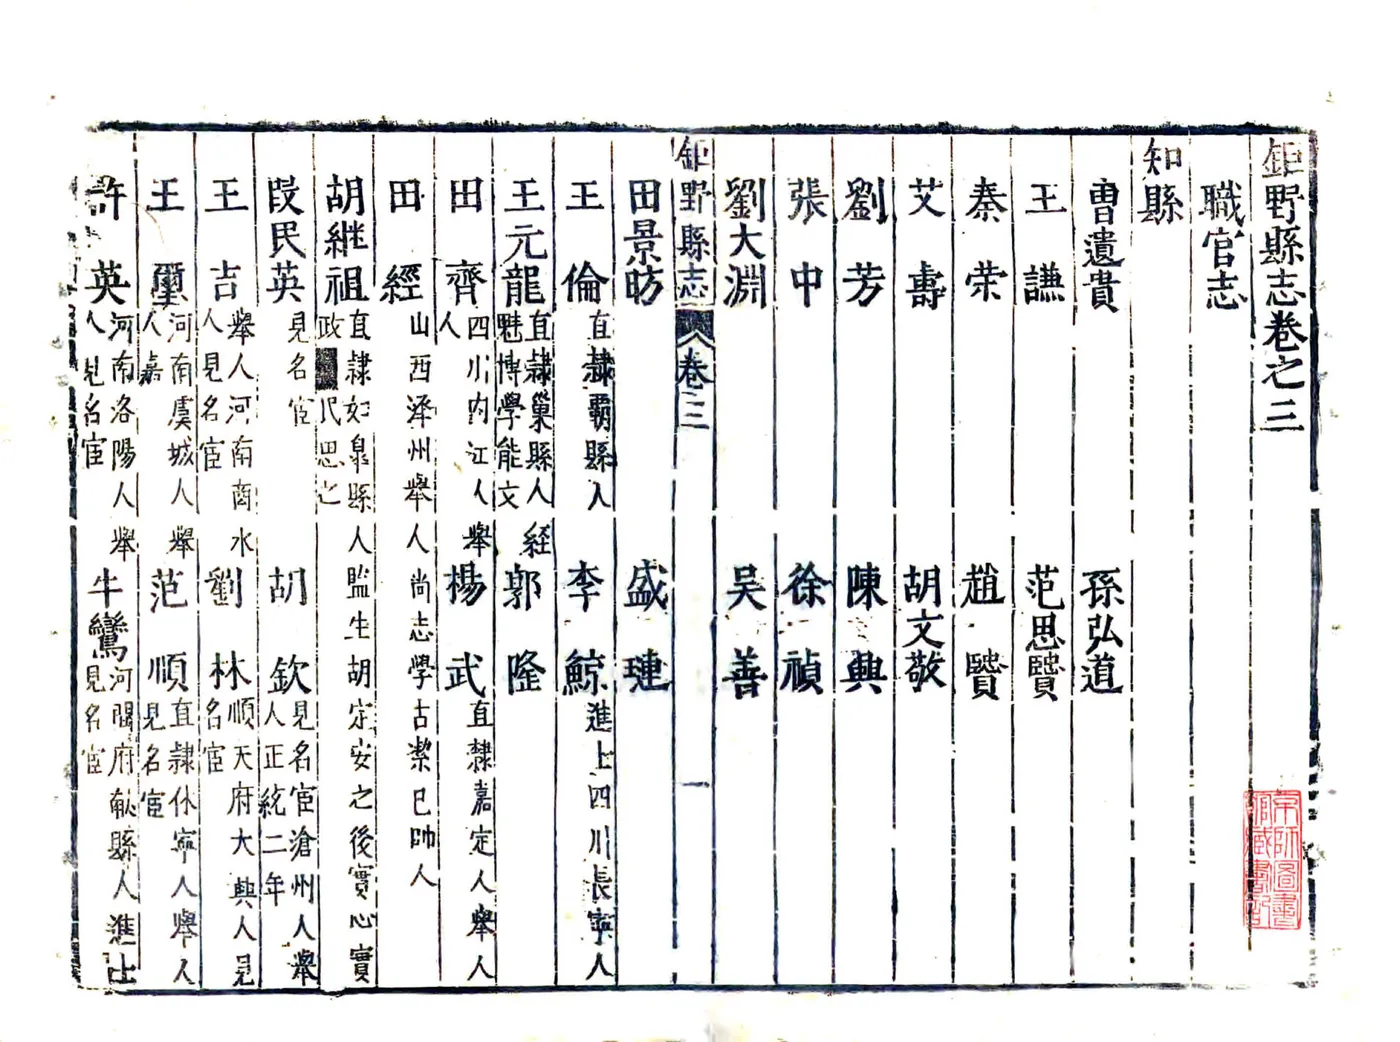 鉅野縣志卷之三
職官志
知縣
曹遺貴 孫弘道
王謙 范思賢
秦荣 趙賢
艾壽 胡文敬
劉芳 陳興
張中 徐禎
劉大淵 吴善
鉅野縣志 卷三 一
田景昉 盛璉
王倫 直隷霸縣人 李鯨 進士四川長寧人
王元龍 直隷巢縣人経魁博學能文 郭隆
田齊 四川内江人舉人 楊武 直隸嘉定人舉人
田經 山西泽州舉人尚志學古潔已帥人
胡継祖 直隷如臯縣人監生胡定安之後實心實政 民思之
段民英 見名宦 胡欽 見名宦滄州人舉人正統二年
王吉 舉人河南商水人見名宦 劉林 順天府大興人見名宦
王璽 河南虞城人舉人嘉 范順 直隷休寧人舉人見名宦
許英 河南洛陽人舉人見名宦 牛鸞 河間府献縣人進士見名宦
京師圖書館藏書記